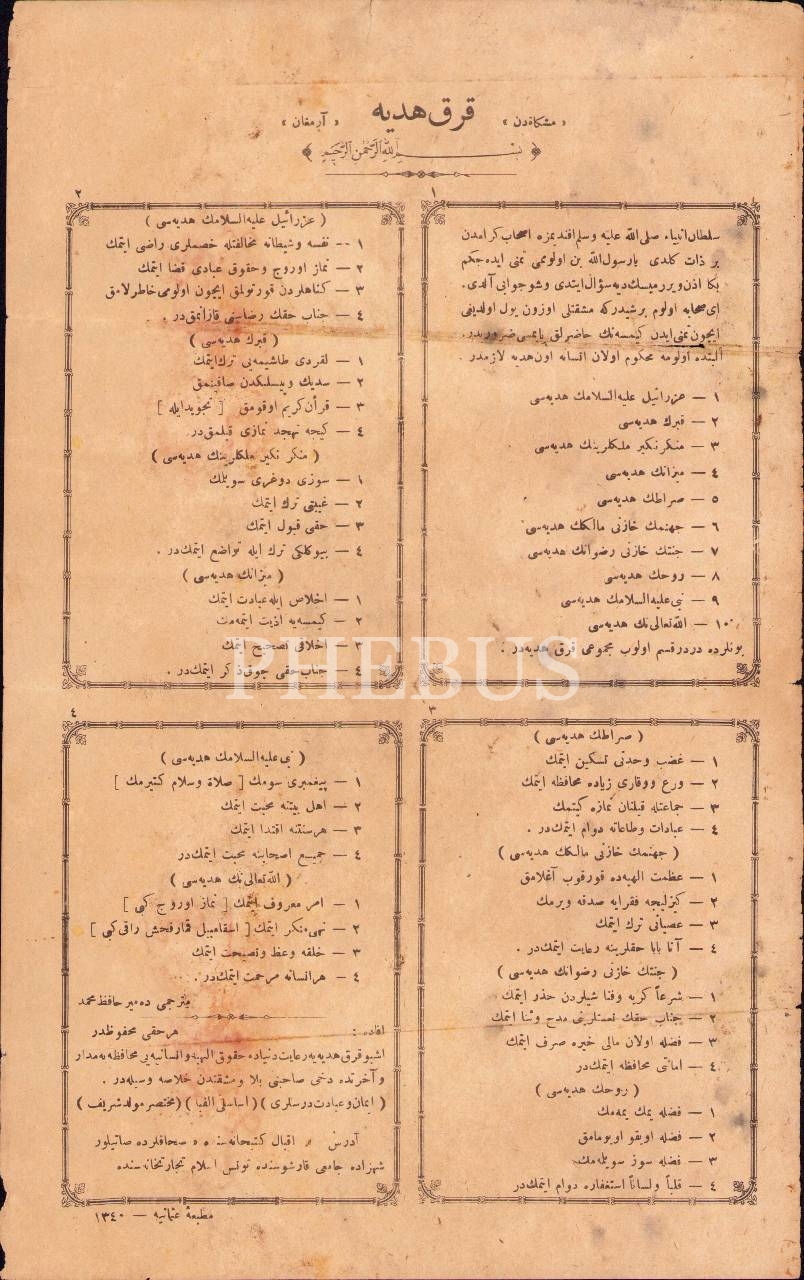 قرق هديه
« مشكاةدن » « آرمغان »
﴿ بسم الله الرحمن الرحيم ﴾
١
سلطان انبياء صلى الله عليه وسلم افنديمزه اصحاب كرامدن
بر ذات كلدى يارسول الله بن اولومى تمنى ايده جكم
بكا اذن ويررميسك ديه سؤال ايتدى وشو جوابى آلدى.
اى صحابه اولوم برشيدركه مشقتلى اوزون يول اولديغى
ايچون تمنى ايدن كيمسه نك حاضرلق ياپمسى ضروريدر.
البته اولومه محكوم اولان انسانه اون هديه لازمدر.
١ — عزرائيل عليه السلامك هديه سى
٢ — قبرك هديه سى
٣ — منكر نكير ملكلرينك هديه سى
٤ — ميزانك هديه سى
٥ — صراطك هديه سى
٦ — جهنمك خازنى مالكك هديه سى
٧ — جنتك خازنى رضوانك هديه سى
٨ — روحك هديه سى
٩ — نبى عليه السلامك هديه سى
١٠ — الله تعالى نك هديه سى
بونلرده دردر قسم اولوب مجموعى قرق هديه در .
٢
( عزرائيل عليه السلامك هديه سى )
١ — نفسه وشيطانه مخالفتله خصملرى راضى ايتمك
٢ — نماز اوروج وحقوق عبادى قضا ايتمك
٣ — كناهلردن قورتولمق ايچون اولومى خاطرلامق
٤ — جناب حقك رضاسنى قازانمق در .
( قبرك هديه سى )
١ — لقردى طاشيمه يى ترك ايتمك
٢ — سديك وپيسلكدن صاقينمق
٣ — قرآن كريم اوقومق [ تجويد ايله ]
٤ — كيجه تهجد نمازى قيلمق در
( منكر نكير ملكلرينك هديه سى )
١ — سوزى دوغرى سويلمك
٢ — غيبتى ترك ايتمك
٣ — حقى قبول ايتمك
٤ — بيوكلكى ترك ايله تواضع ايتمك در .
( ميزانك هديه سى )
١ — اخلاص ايله عبادت ايتمك
٢ — كيمسه يه اذيت ايتمه مك
٣ — اخلاقى تصحيح ايتمك
٤ — جناب حقى چوق ذكر ايتمك در .
٣
( صراطك هديه سى )
١ — غضب وحدتى تسكين ايتمك
٢ — ورع ووقارى زياده محافظه ايتمك
٣ — جماعتله قيلنان نمازه كيتمك
٤ — عبادات وطاعاته دوام ايتمك در .
( جهنمك خازنى مالكك هديه سى )
١ — عظمت الهيه ده قورقوب آغلامق
٢ — كيزليجه فقرايه صدقه ويرمك
٣ — عصيانى ترك ايتمك
٤ — آنا بابا حقلرينه رعايت ايتمك در .
( جنتك خازنى رضوانك هديه سى )
١ — شرعاً كريه وفنا شيلردن حذر ايتمك
٢ — جناب حقك نعمتلرينى مدح وثنا ايتمك
٣ — فضله اولان مالى خيره صرف ايتمك
٤ — امانتى محافظه ايتمك در
( روحك هديه سى )
١ — فضله يمك يمه مك
٢ — فضله اويقو اويومامق
٣ — فضله سوز سويله مك
٤ — قلباً ولساناً استغفاره دوام ايتمك در
٤
( نبى عليه السلامك هديه سى )
١ — پيغمبرى سومك [ صلاة وسلام كتيرمك ]
٢ — اهل بيتنه محبت ايتمك
٣ — هر سنتنه اقتدا ايتمك
٤ — جميع اصحابنه محبت ايتمك در
( الله تعالى نك هديه سى )
١ — امر معروف ايتمك [ نماز اوروج كبى ]
٢ — نهى منكر ايتمك [ اسقامبيل قمار فحش راقى كبى ]
٣ — خلقه وعظ ونصيحت ايتمك
٤ — هر انسانه مرحمت ايتمك در .
مترجمى دمير حافظ محمد
افاده : هر حقى محفوظدر
اشبو قرق هديه يه رعايت دنياده حقوق الهيه وانسانيه يى محافظه يه مدار
و آخرتده دخى صاحبنى بلا ومشقتدن خلاصه وسيله در .
( ايمان وعبادت درسلرى ) ( اساسلى الفبا ) ( مختصر مولد شريف )
آدرس » اقبال كتبخانه سنده و صحافلرده صاتيلور
شهزاده جامعى قارشوسنده تونس اسلام تجارتخانه سنده
مطبعۀ عثمانيه — ١٣٤٠
PHEBUS